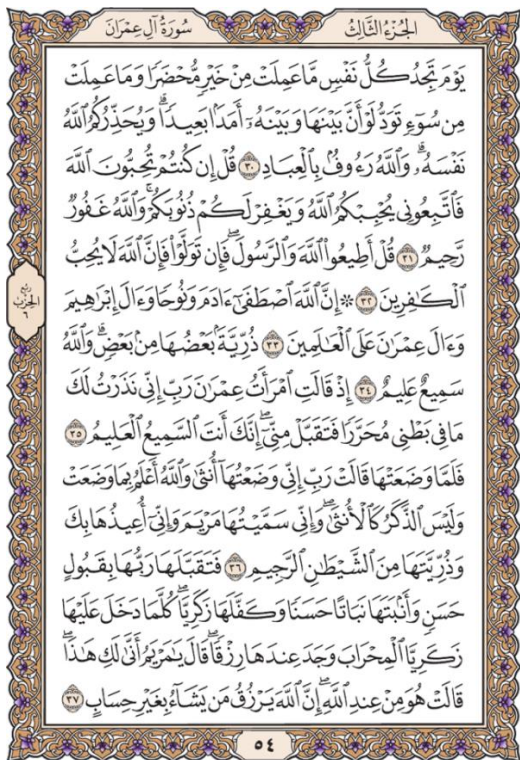 الجُزْءُ الثَّالِثُ
سُورَةُ آلِ عِمْرَانَ
يَوْمَ تَجِدُ كُلُّ نَفْسٍ مَّا عَمِلَتْ مِنْ خَيْرٍ مُّحْضَرًا وَمَا عَمِلَتْ
مِن سُوٓءٍ تَوَدُّ لَوْ أَنَّ بَيْنَهَا وَبَيْنَهُۥٓ أَمَدَۢا بَعِيدًاۗ وَيُحَذِّرُكُمُ ٱللَّهُ
نَفْسَهُۥۗ وَٱللَّهُ رَءُوفُۢ بِٱلْعِبَادِ ٣٠ قُلْ إِن كُنتُمْ تُحِبُّونَ ٱللَّهَ
فَٱتَّبِعُونِى يُحْبِبْكُمُ ٱللَّهُ وَيَغْفِرْ لَكُمْ ذُنُوبَكُمْۗ وَٱللَّهُ غَفُورٌ
رَّحِيمٌ ٣١ قُلْ أَطِيعُوا۟ ٱللَّهَ وَٱلرَّسُولَۖ فَإِن تَوَلَّوْا۟ فَإِنَّ ٱللَّهَ لَا يُحِبُّ
ٱلْكَٰفِرِينَ ٣٢ ۞ إِنَّ ٱللَّهَ ٱصْطَفَىٰٓ ءَادَمَ وَنُوحًا وَءَالَ إِبْرَٰهِيمَ
وَءَالَ عِمْرَٰنَ عَلَى ٱلْعَٰلَمِينَ ٣٣ ذُرِّيَّةَۢ بَعْضُهَا مِنۢ بَعْضٍۗ وَٱللَّهُ
سَمِيعٌ عَلِيمٌ ٣٤ إِذْ قَالَتِ ٱمْرَأَتُ عِمْرَٰنَ رَبِّ إِنِّى نَذَرْتُ لَكَ
مَا فِى بَطْنِى مُحَرَّرًا فَتَقَبَّلْ مِنِّىٓۖ إِنَّكَ أَنتَ ٱلسَّمِيعُ ٱلْعَلِيمُ ٣٥
فَلَمَّا وَضَعَتْهَا قَالَتْ رَبِّ إِنِّى وَضَعْتُهَآ أُنثَىٰ وَٱللَّهُ أَعْلَمُ بِمَا وَضَعَتْ
وَلَيْسَ ٱلذَّكَرُ كَٱلْأُنثَىٰۖ وَإِنِّى سَمَّيْتُهَا مَرْيَمَ وَإِنِّىٓ أُعِيذُهَا بِكَ
وَذُرِّيَّتَهَا مِنَ ٱلشَّيْطَٰنِ ٱلرَّجِيمِ ٣٦ فَتَقَبَّلَهَا رَبُّهَا بِقَبُولٍ
حَسَنٍ وَأَنۢبَتَهَا نَبَاتًا حَسَنًا وَكَفَّلَهَا زَكَرِيَّاۖ كُلَّمَا دَخَلَ عَلَيْهَا
زَكَرِيَّا ٱلْمِحْرَابَ وَجَدَ عِندَهَا رِزْقًاۖ قَالَ يَٰمَرْيَمُ أَنَّىٰ لَكِ هَٰذَاۖ
قَالَتْ هُوَ مِنْ عِندِ ٱللَّهِۖ إِنَّ ٱللَّهَ يَرْزُقُ مَن يَشَآءُ بِغَيْرِ حِسَابٍ ٣٧
رُبْعُ
الحِزْبِ
٦
٥٤